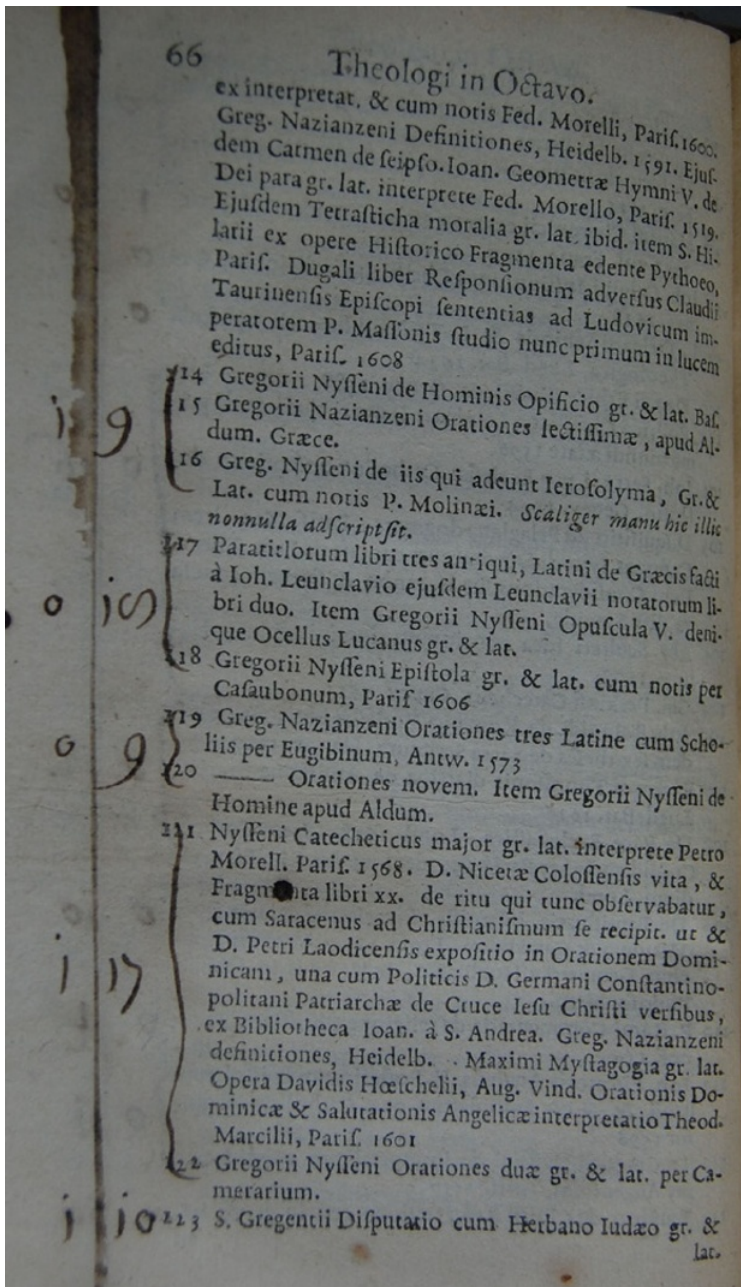 66 Theologi in Octavo.
ex interpretat. & cum notis Fed. Morelli, Pariſ. 1600.
Greg. Nazianzeni Definitiones, Heidelb. 1591. Ejuſ-
dem Carmen de ſeipſo. Ioan. Geometræ Hymni V. de
Dei para gr. lat. interprete Fed. Morello, Pariſ. 1519.
Ejuſdem Tetraſticha moralia gr. lat. ibid. item S. Hi-
larii ex opere Hiſtorico Fragmenta edente Pythoeo,
Pariſ. Dugali liber Reſponſionum adverſus Claudii
Taurinenſis Epiſcopi ſententias ad Ludovicum im-
peratorem P. Maſſonis ſtudio nunc primum in lucem
editus, Pariſ. 1608
214 Gregorii Nyſſeni de Hominis Opificio gr. & lat. Baſ.
215 Gregorii Nazianzeni Orationes lectiſſimæ, apud Al-
dum. Græce.
i 9
216 Greg. Nyſſeni de iis qui adeunt Ieroſolyma, Gr. &
Lat. cum notis P. Molinæi. Scaliger manu hic illic
nonnulla adſcriptſit.
217 Paratitlorum libri tres antiqui, Latini de Græcis facti
à Ioh. Leunclavio ejuſdem Leunclavii notatorum li-
o
bri duo. Item Gregorii Nyſſeni Opuſcula V. deni-
que Ocellus Lucanus gr. & lat.
218 Gregorii Nyſſeni Epiſtola gr. & lat. cum notis per
Caſaubonum, Pariſ 1606
219 Greg. Nazianzeni Orationes tres Latine cum Scho-
liis per Eugibinum, Antw. 1573
o 9
220 —— Orationes novem. Item Gregorii Nyſſeni de
Homine apud Aldum.
221 Nyſſeni Catecheticus major gr. lat. interprete Petro
Morell. Pariſ. 1568. D. Nicetæ Coloſſenſis vita, &
Fragmenta libri xx. de ritu qui tunc obſervabatur,
cum Saracenus ad Chriſtianiſmum ſe recipit. ut &
D. Petri Laodicenſis expoſitio in Orationem Domi-
i 17
nicam, una cum Politicis D. Germani Conſtantino-
politani Patriarchæ de Cruce Ieſu Chriſti verſibus,
ex Bibliotheca Ioan. à S. Andrea. Greg. Nazianzeni
definitiones, Heidelb. Maximi Myſtagogia gr. lat.
Opera Davidis Hœſchelii, Aug. Vind. Orationis Do-
minicæ & Salutationis Angelicæ interpretatio Theod.
Marcilii, Pariſ. 1601
222 Gregorii Nyſſeni Orationes duæ gr. & lat. per Ca-
merarium.
i 10 223 S. Gregentii Diſputatio cum Herbano Iudæo gr. &
lat.